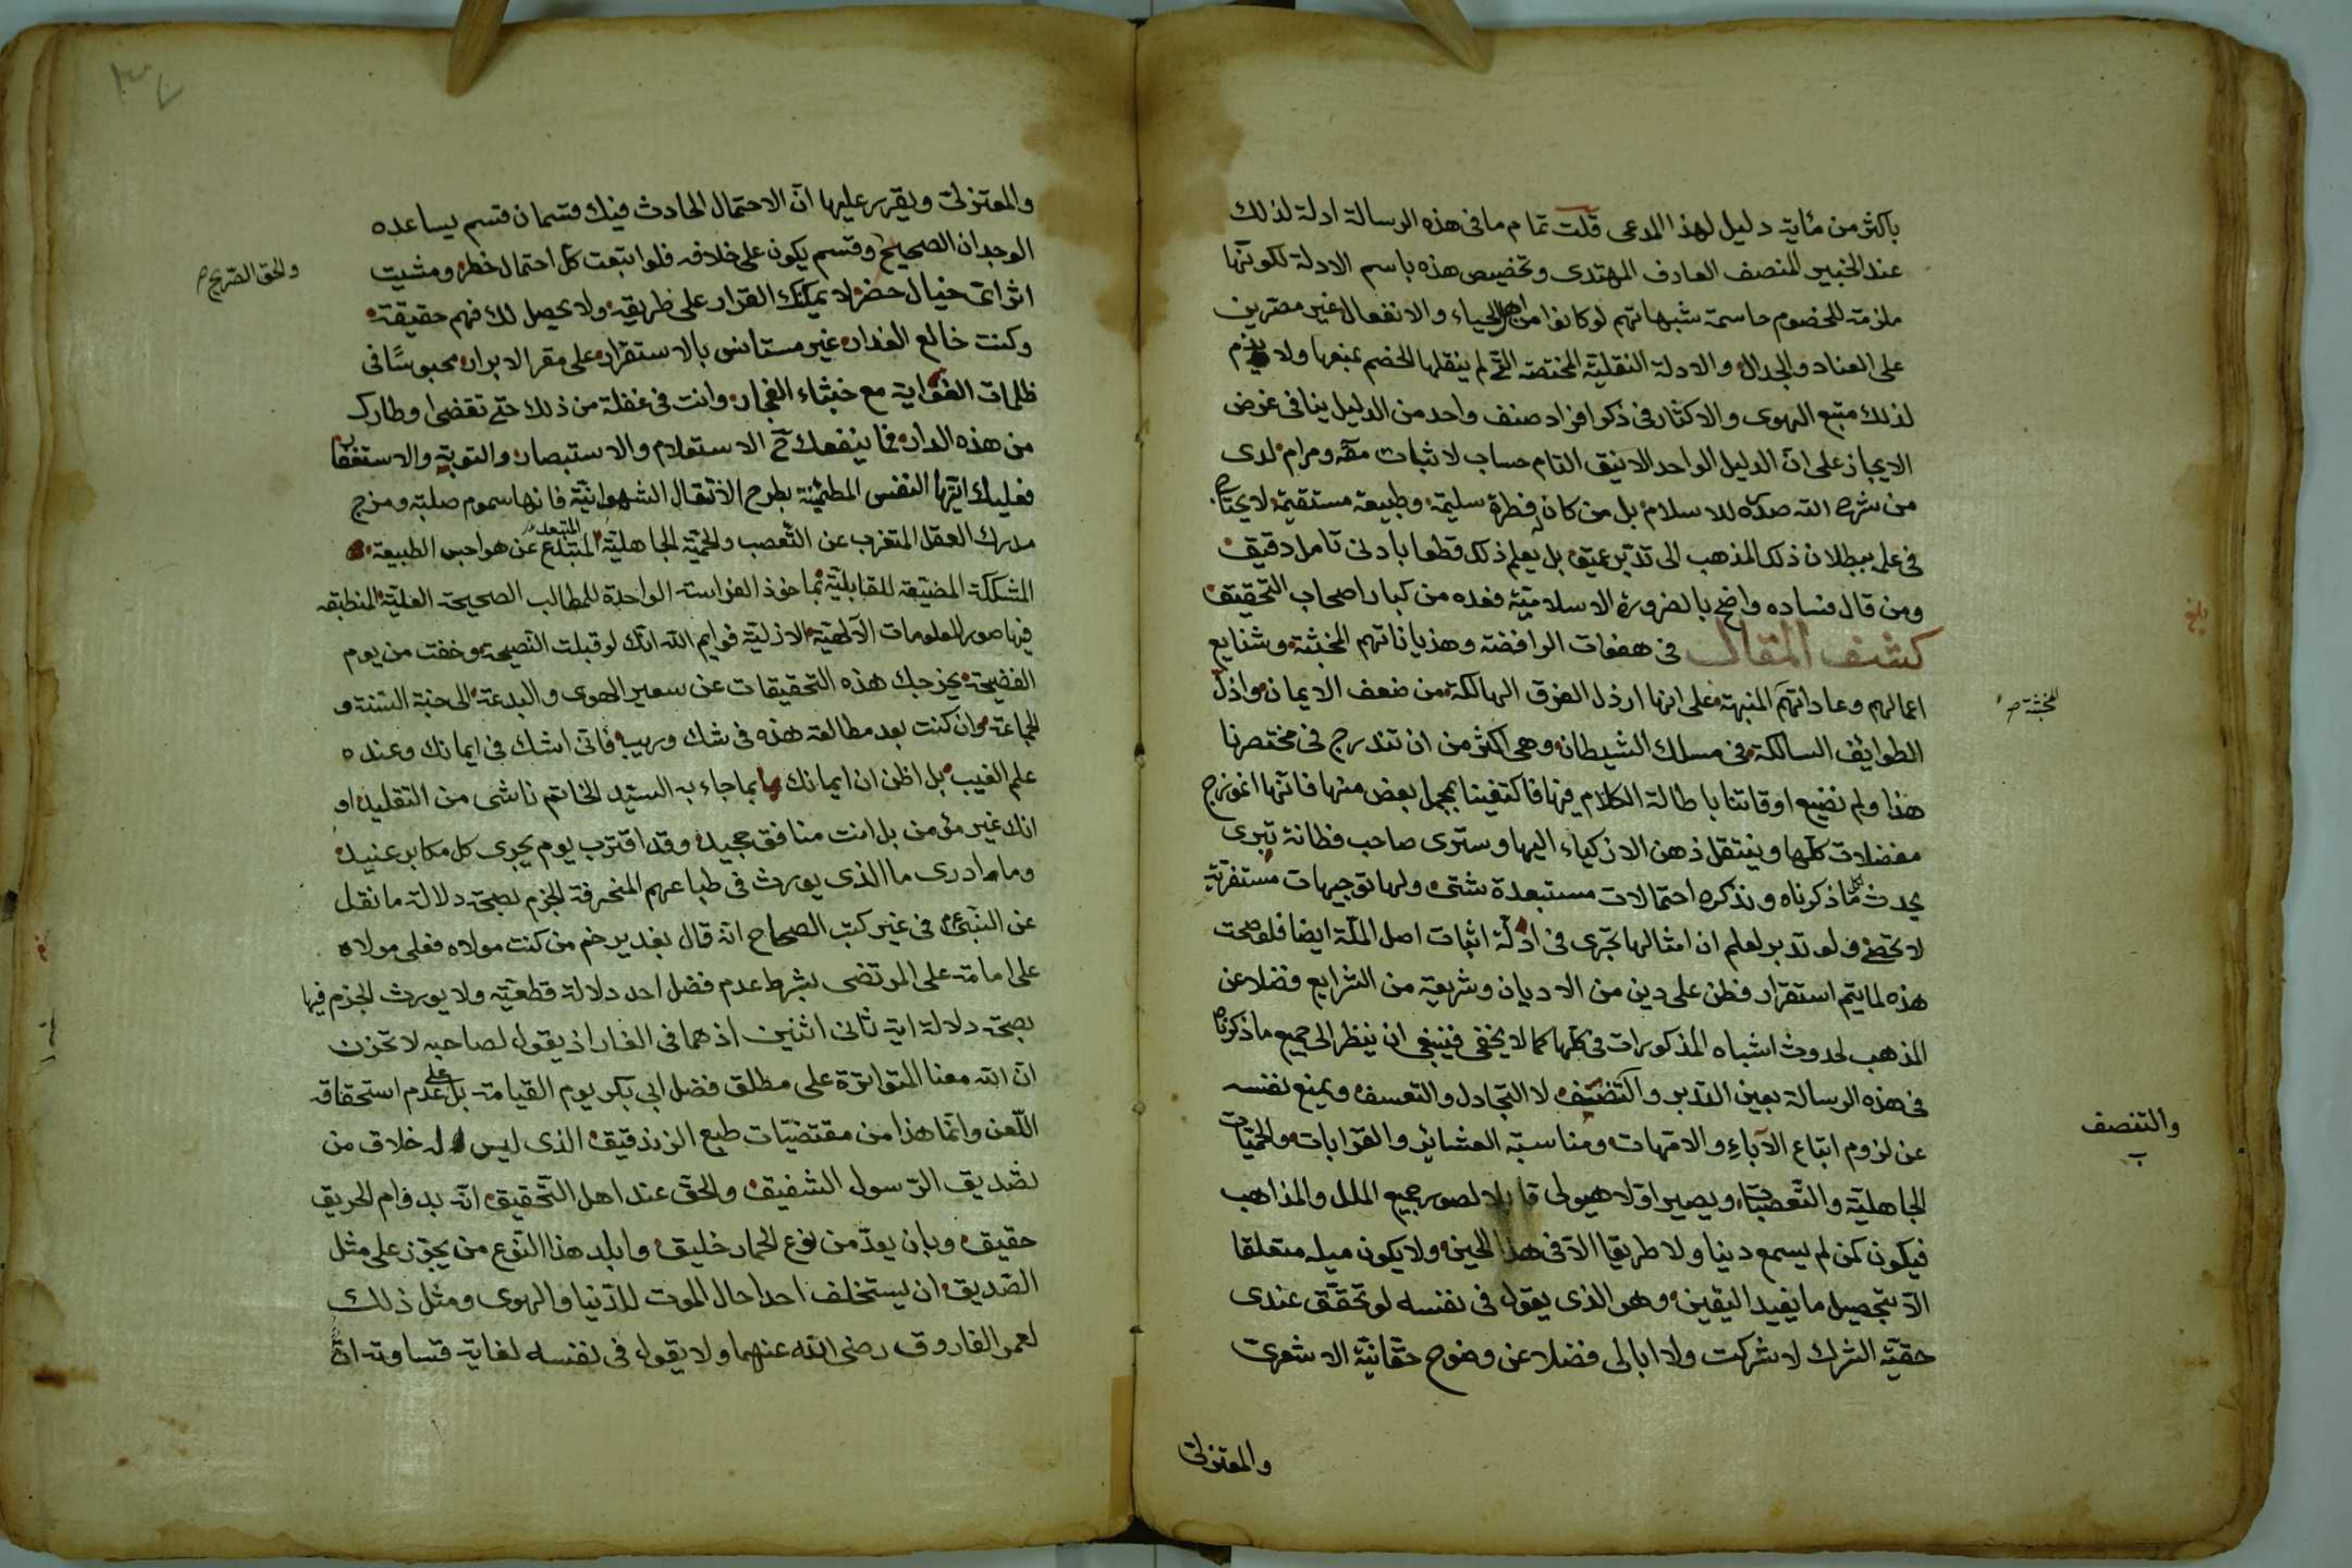 باكثر من مأية دليل لهذا المدعى قلت تمام ما في هذه الرسالة ادلة لذلك
عند الخبير المنصف العارف المهتدى وتخصيص هذه باسم الادلة لكونها
ملزمة للخصوم حاسمة شبهاتهم لو كانوا من اهل الحياء والانفعال غير مصرين
على العناد والجدال والادلة النقلية المختصة التي لم ينقلها الخصم بمنعها ولا
لذلك متبع الهوى والاكثار في ذكر افراد صنف واحد من الدليل ينافي غرض
الايجاز على ان الدليل الواحد الانيق التام حساب لاثبات مقه ومرام لدى
من شرح الله صدره للاسلام بل من كان له فطرة سليمة وطبيعة مستقيمة لا يحتاج
في علم ببطلان ذلك المذهب الى تدبر عميق بل يعلم ذلك قطعا بادنى تامل دقيق
ومن قال فساده واضح بالضرورة الاسلامية فعده من كبار اصحاب التحقيق
كشف المقال في هفوات الرافضة وهذياناتهم المخبثة وشنايع
اعمالهم وعاداتهم المنبهة على انها ارذل الفرق الهالكة من ضعف الايمان واذل
للمخبثة ص
الطوايف السالكة في مسلك الشيطان وهي اكثر من ان تندرج في مختصرنا
هذا ولم نضيع اوقاتنا باطالة الكلام فيها فاكتفينا بمجمل بعض منها فانها انموزج
معضلات كلها وينتقل ذهن الازكياء اليها وسترى صاحب فطانة تبرى
يحدث كل ما ذكرناه ونذكره احتمالات مستبعدة شتى ولها توجيهات مستفرية
لا تحصى ولو تدبر لعلم ان امثالها تجرى في ادلة اثبات اصل الملة ايضا فلو صحت
هذه لما يتم استقرار فطن على دين من الاديان وشريعة من الشرايع فضلا عن
المذهب لحدوث اشباه المذكورات في كلها كما لا يخفى فينبغى ان ينظر الى جميع ما ذكرناه
في هذه الرسالة بعين التدبر والتنصف لا التجادل والتعسف ويمنع نفسه
والتنصف
عن لزوم اتباع الآباء والامهات ومناسبة العشائر والقرابات والحميات
الجاهلية والتعصبات ويصير اولا هيولى قابلا لصور جميع الملل والمذاهب
فيكون كمن لم يسمع دينا ولا طريقا الا في هذا الحين ولا يكون ميله متعلقا
الا بتحصيل ما يفيد اليقين وهو الذى يقول في نفسه لو تحقق عندى
حقية الشرك لاشركت ولا ابالى فضلا عن وضوح حقانية الاشعرى
والمعتزلى
والمعتزلى ويقرر عليها ان الاحتمال الحادث فيك قسمان قسم يساعده
الوجدان الصحيح وقسم يكون على خلافه فلو اتبعت كل احتمال خطر ومشيت
والحق الصريح ص
اثر اى خيال حضر لا يمكنك القرار على طريقه ولا يحصل لك فهم حقيقة
وكنت خالع العذار غير مستانس بالاستقرار على مقر الابرار محبوسا في
ظلمات الغواية مع خبثاء الفجار وانت في غفلة من ذلك حتى تقضى اوطارك
من هذه الدار فما ينفعك ح الاستعلام والاستبصار والتوبة والاستغفار
فعليك ايتها النفس المطمئنة بطرح الاثقال الشهوانية فانها سموم صلبة ومزج
مدرك العقل المتغرب عن التعصب والحمية الجاهلية المتبعد عن هواجس الطبيعة
المشككة المضيقة للقابلية بماخوذ الفراسة الواحدة للمطالب الصحيحة العلية المنطبقه
فيها صور المعلومات الآلهية الازلية فوايم الله انك لو قبلت النصيحة وخفت من يوم
الفضيحة يخرجك هذه التحقيقات عن سعير الهوى والبدعة الى جنة السنة و
الجماعة وان كنت بعد مطالعة هذه في شك وريب فانى اشك في ايمانك وعنده
علم الغيب بل اظن ان ايمانك بما جاء به السيد الخاتم ناشى من التقليد او
انك غير مؤمن بل انت منافق جحيد وقد اقترب يوم يجرى كل مكابر عنيد
وما ادرى ما الذى يورث في طباعهم المنحرفة الجزم بصحة دلالة ما نقل
عن النبى في غير كتب الصحاح انه قال بغدير خم من كنت مولاه فعلى مولاه
على امامة على المرتضى بشرط عدم فضل احد دلالة قطعية ولا يورث الجزم فيها
بصحة دلالة اية ثانى اثنين اذ هما في الغار اذ يقول لصاحبه لا تحزن
ان الله معنا المتواترة على مطلق فضل ابي بكر يوم القيامة بل على عدم استحقاقه
اللعن وانما هذا من مقتضيات طبع الزنديق الذى ليس له خلاق من
تصديق الرسول الشفيق والحق عند اهل التحقيق انه بدوام الحريق
حقيق وبان يعد من نوع الحمار خليق وابلد هذا النوع من يجوز على مثل
الصديق ان يستخلف احدا حال الموت للدنيا والهوى ومثل ذلك
لعمر الفاروق رضى الله عنهما ولا يقول في نفسه لغاية قساوته ان